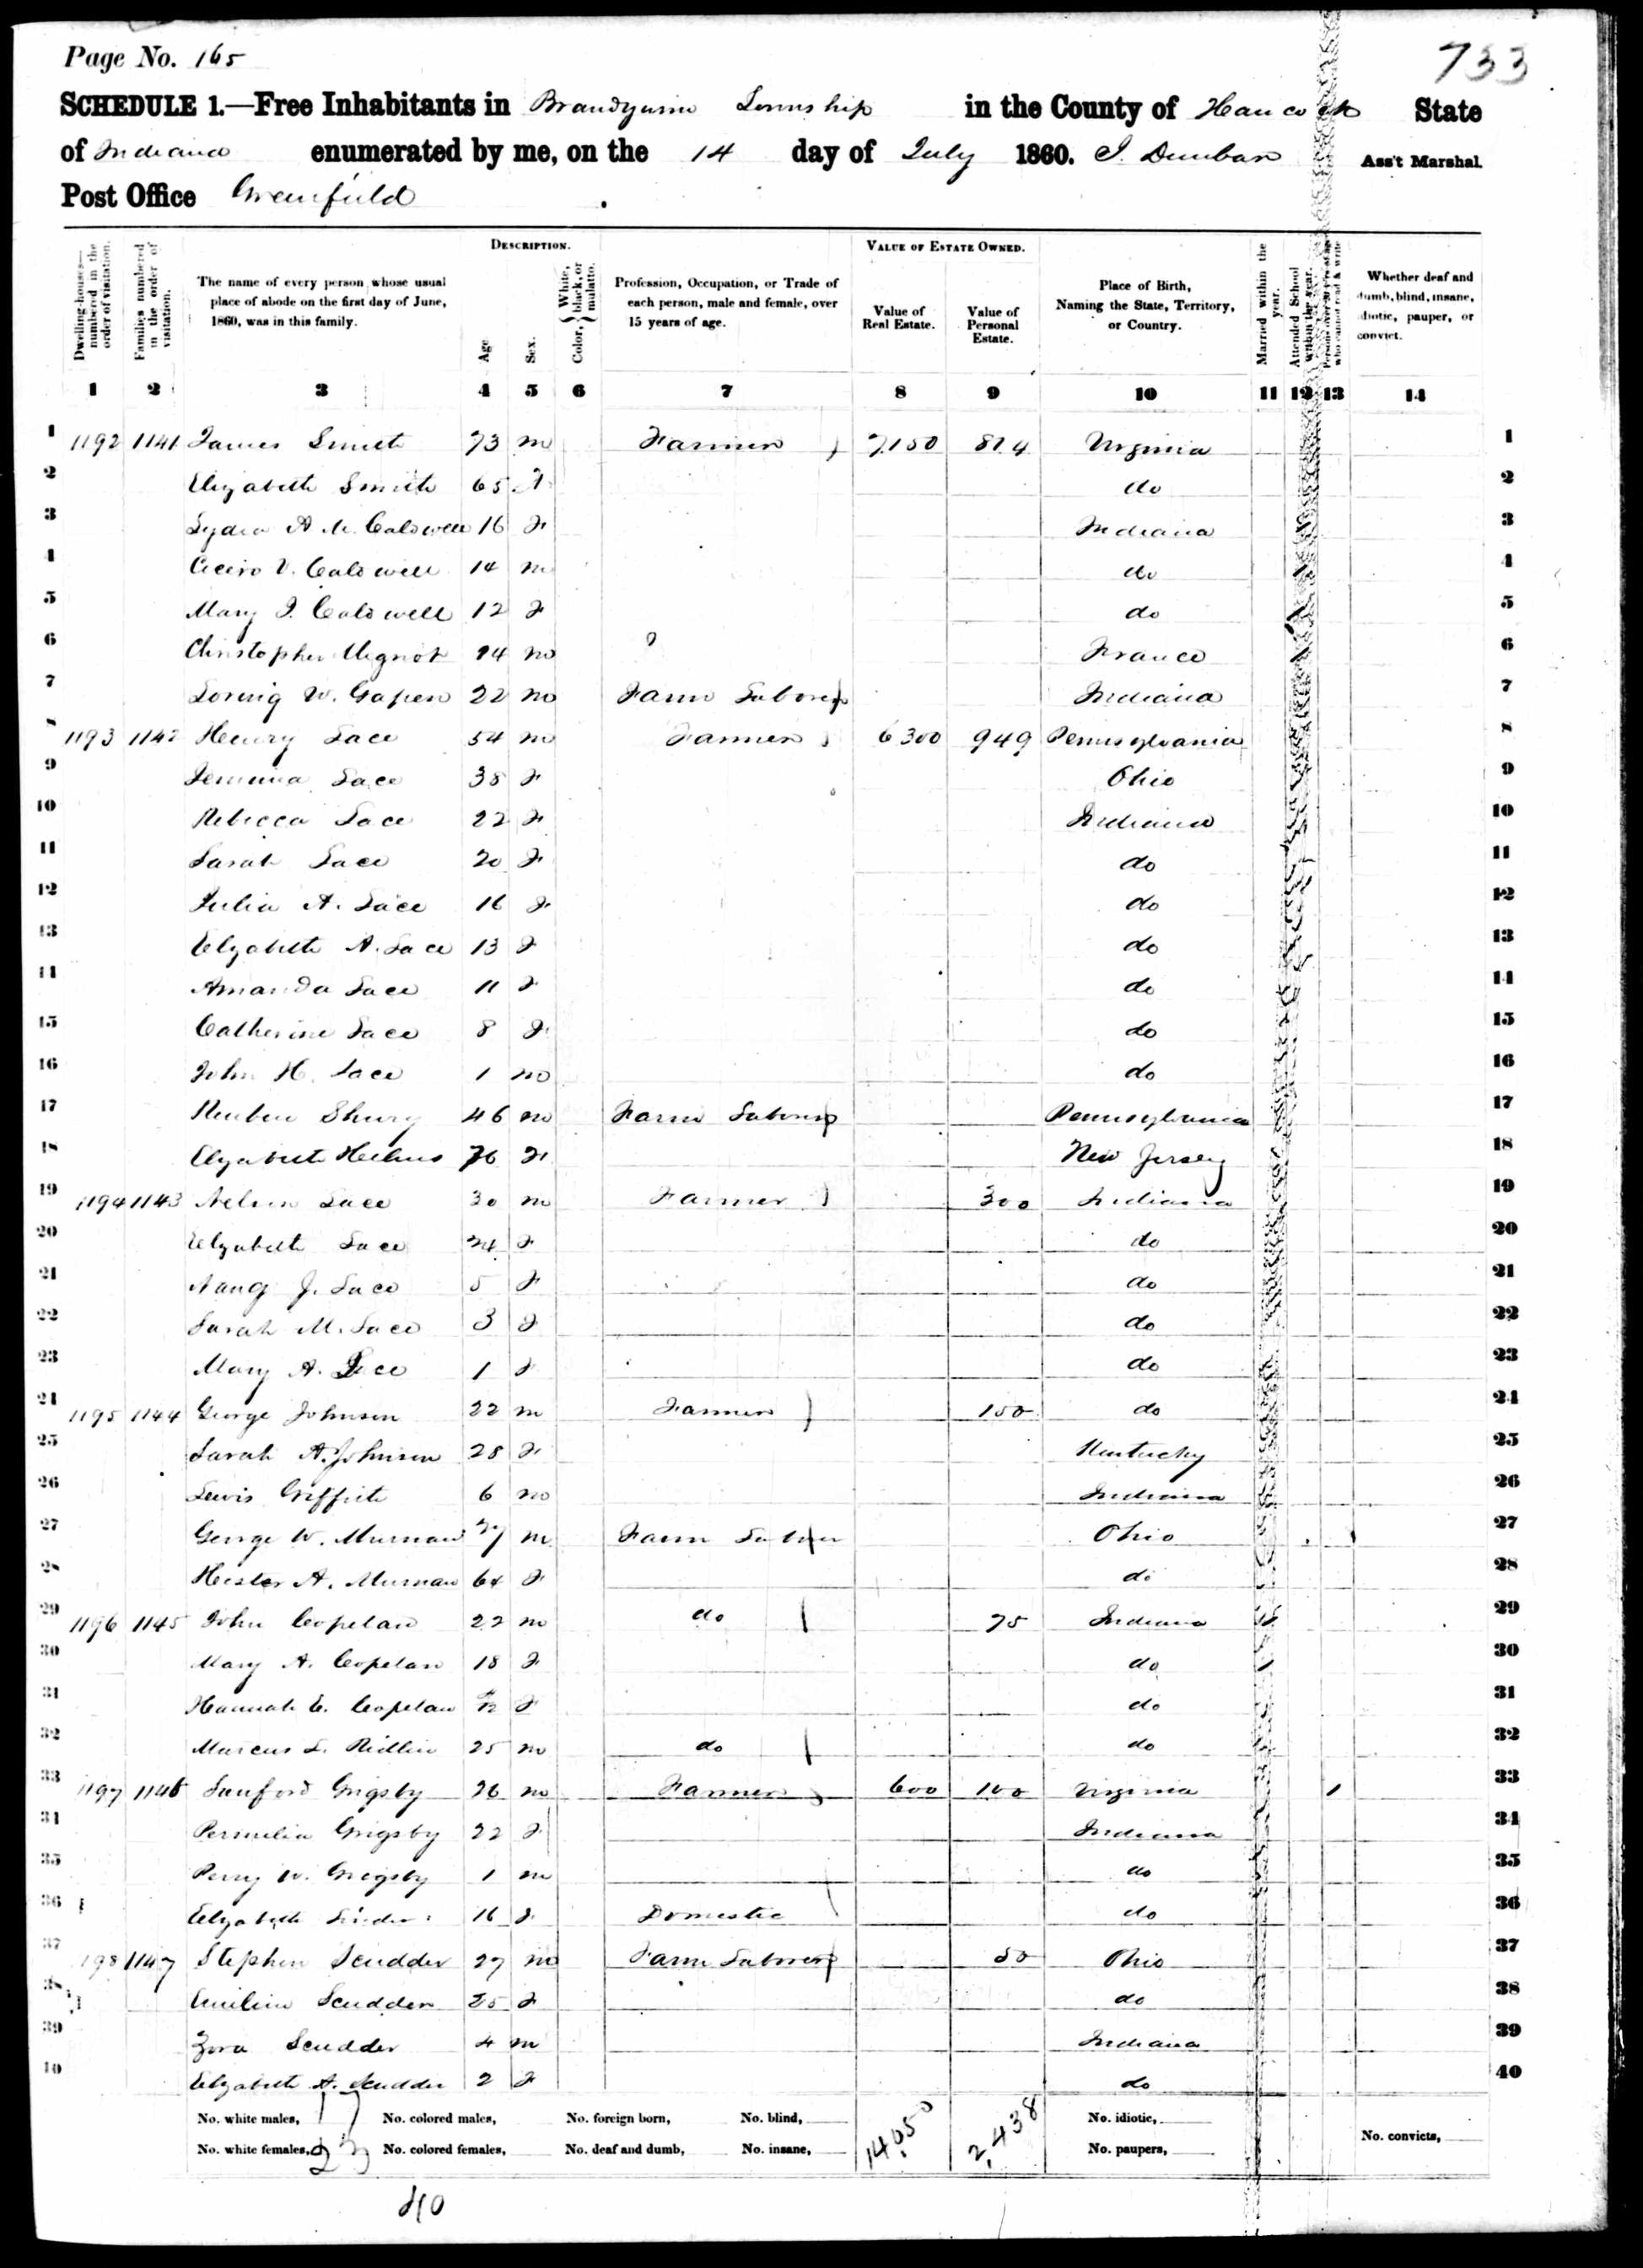 Page No. 165
733
SCHEDULE 1.—Free Inhabitants in Brandywine Township in the County of Hancock State
of Indiana enumerated by me, on the 14 day of July 1860. J. Dunbar Ass't Marshal.
Post Office Greenfield
Dwelling-houses—numbered in the order of visitation.
Families numbered in the order of visitation.
The name of every person whose usual place of abode on the first day of June, 1860, was in this family.
DESCRIPTION.
Age
Sex.
Color, { White, black, or mulatto.
Profession, Occupation, or Trade of each person, male and female, over 15 years of age.
VALUE OF ESTATE OWNED.
Value of Real Estate.
Value of Personal Estate.
Place of Birth, Naming the State, Territory, or Country.
Married within the year.
Attended School within the year.
Persons over 20 y'rs of age who cannot read & write
Whether deaf and dumb, blind, insane, idiotic, pauper, or convict.
1 2 3 4 5 6 7 8 9 10 11 12 13 14
1 1192 1141 James Smith 73 m Farmer 7,150 814 Virginia 1
2 Elizabeth Smith 65 f do 2
3 Lydia A. Caldwell 16 f Indiana 3
4 Cicero V. Caldwell 14 m do 4
5 Mary J. Caldwell 12 f do 5
6 Christopher Mignot 14 m France 6
7 Loring W. Gapen 22 m Farm Laborer Indiana 7
8 1193 1142 Henry Lace 54 m Farmer 6300 949 Pennsylvania 8
9 Jemima Lace 38 f Ohio 9
10 Rebecca Lace 22 f Indiana 10
11 Sarah Lace 20 f do 11
12 Julia A. Lace 16 f do 12
13 Elizabeth A. Lace 13 f do 13
14 Amanda Lace 11 f do 14
15 Catherine Lace 8 f do 15
16 John H. Lace 1 m do 16
17 Reuben Shury 46 m Farm Laborer Pennsylvania 17
18 Elizabeth 76 f New Jersey 18
19 1194 1143 Nelson Lace 30 m Farmer 300 Indiana 19
20 Elizabeth Lace 24 f do 20
21 Nancy J. Lace 5 f do 21
22 Sarah M. Lace 3 f do 22
23 Mary A. Lace 1 f do 23
24 1195 1144 George Johnson 22 m Farmer 150 do 24
25 Sarah A. Johnson 28 f Kentucky 25
26 Lewis Griffith 6 m Indiana 26
27 George W. Murnan 27 m Farm Laborer Ohio 1 27
28 Hester A. Murnan 64 f do 28
29 1196 1145 John Copelan 22 m do 75 Indiana 29
30 Mary A. Copelan 18 f do 1 30
31 Hannah E. Copelan f do 31
32 Marcus L. Ridlin 25 m do do 32
33 1197 1146 Sanford Grigsby 26 m Farmer 600 100 Virginia 1 33
34 Permelia Grigsby 22 f Indiana 34
35 Perry W. Grigsby 1 m do 35
36 Elizabeth 16 f Domestic do 36
37 1198 1147 Stephen Scudder 27 m Farm Laborer 50 Ohio 37
38 Emiline Scudder 25 f do 38
39 Zora Scudder 4 m Indiana 39
40 Elizabeth A. Scudder 2 f do 40
No. white males, 17 No. colored males, No. foreign born, No. blind, 14050 2,438 No. idiotic,
No. white females, 23 No. colored females, No. deaf and dumb, No. insane, No. paupers, No. convicts,
40